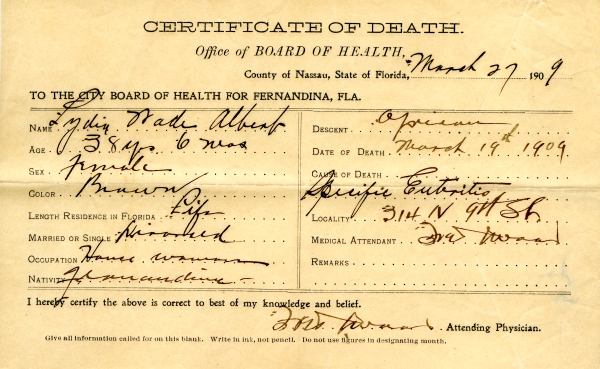 CERTIFICATE OF DEATH.
Office of BOARD OF HEALTH,
County of Nassau, State of Florida, March 27 1909
TO THE CITY BOARD OF HEALTH FOR FERNANDINA, FLA.
NAME Lydia Wade Albert
AGE 38 yrs 6 mos
SEX Female
COLOR Brown
LENGTH RESIDENCE IN FLORIDA Life
MARRIED OR SINGLE Divorced
OCCUPATION House
NATIVITY Fernandina
DESCENT African
DATE OF DEATH March 19th 1909
CAUSE OF DEATH
Specific
LOCALITY 314 N 9th St
MEDICAL ATTENDANT
REMARKS
I hereby certify the above is correct to best of my knowledge and belief.
Attending Physician.
Give all information called for on this blank. Write in ink, not pencil. Do not use figures in designating month.